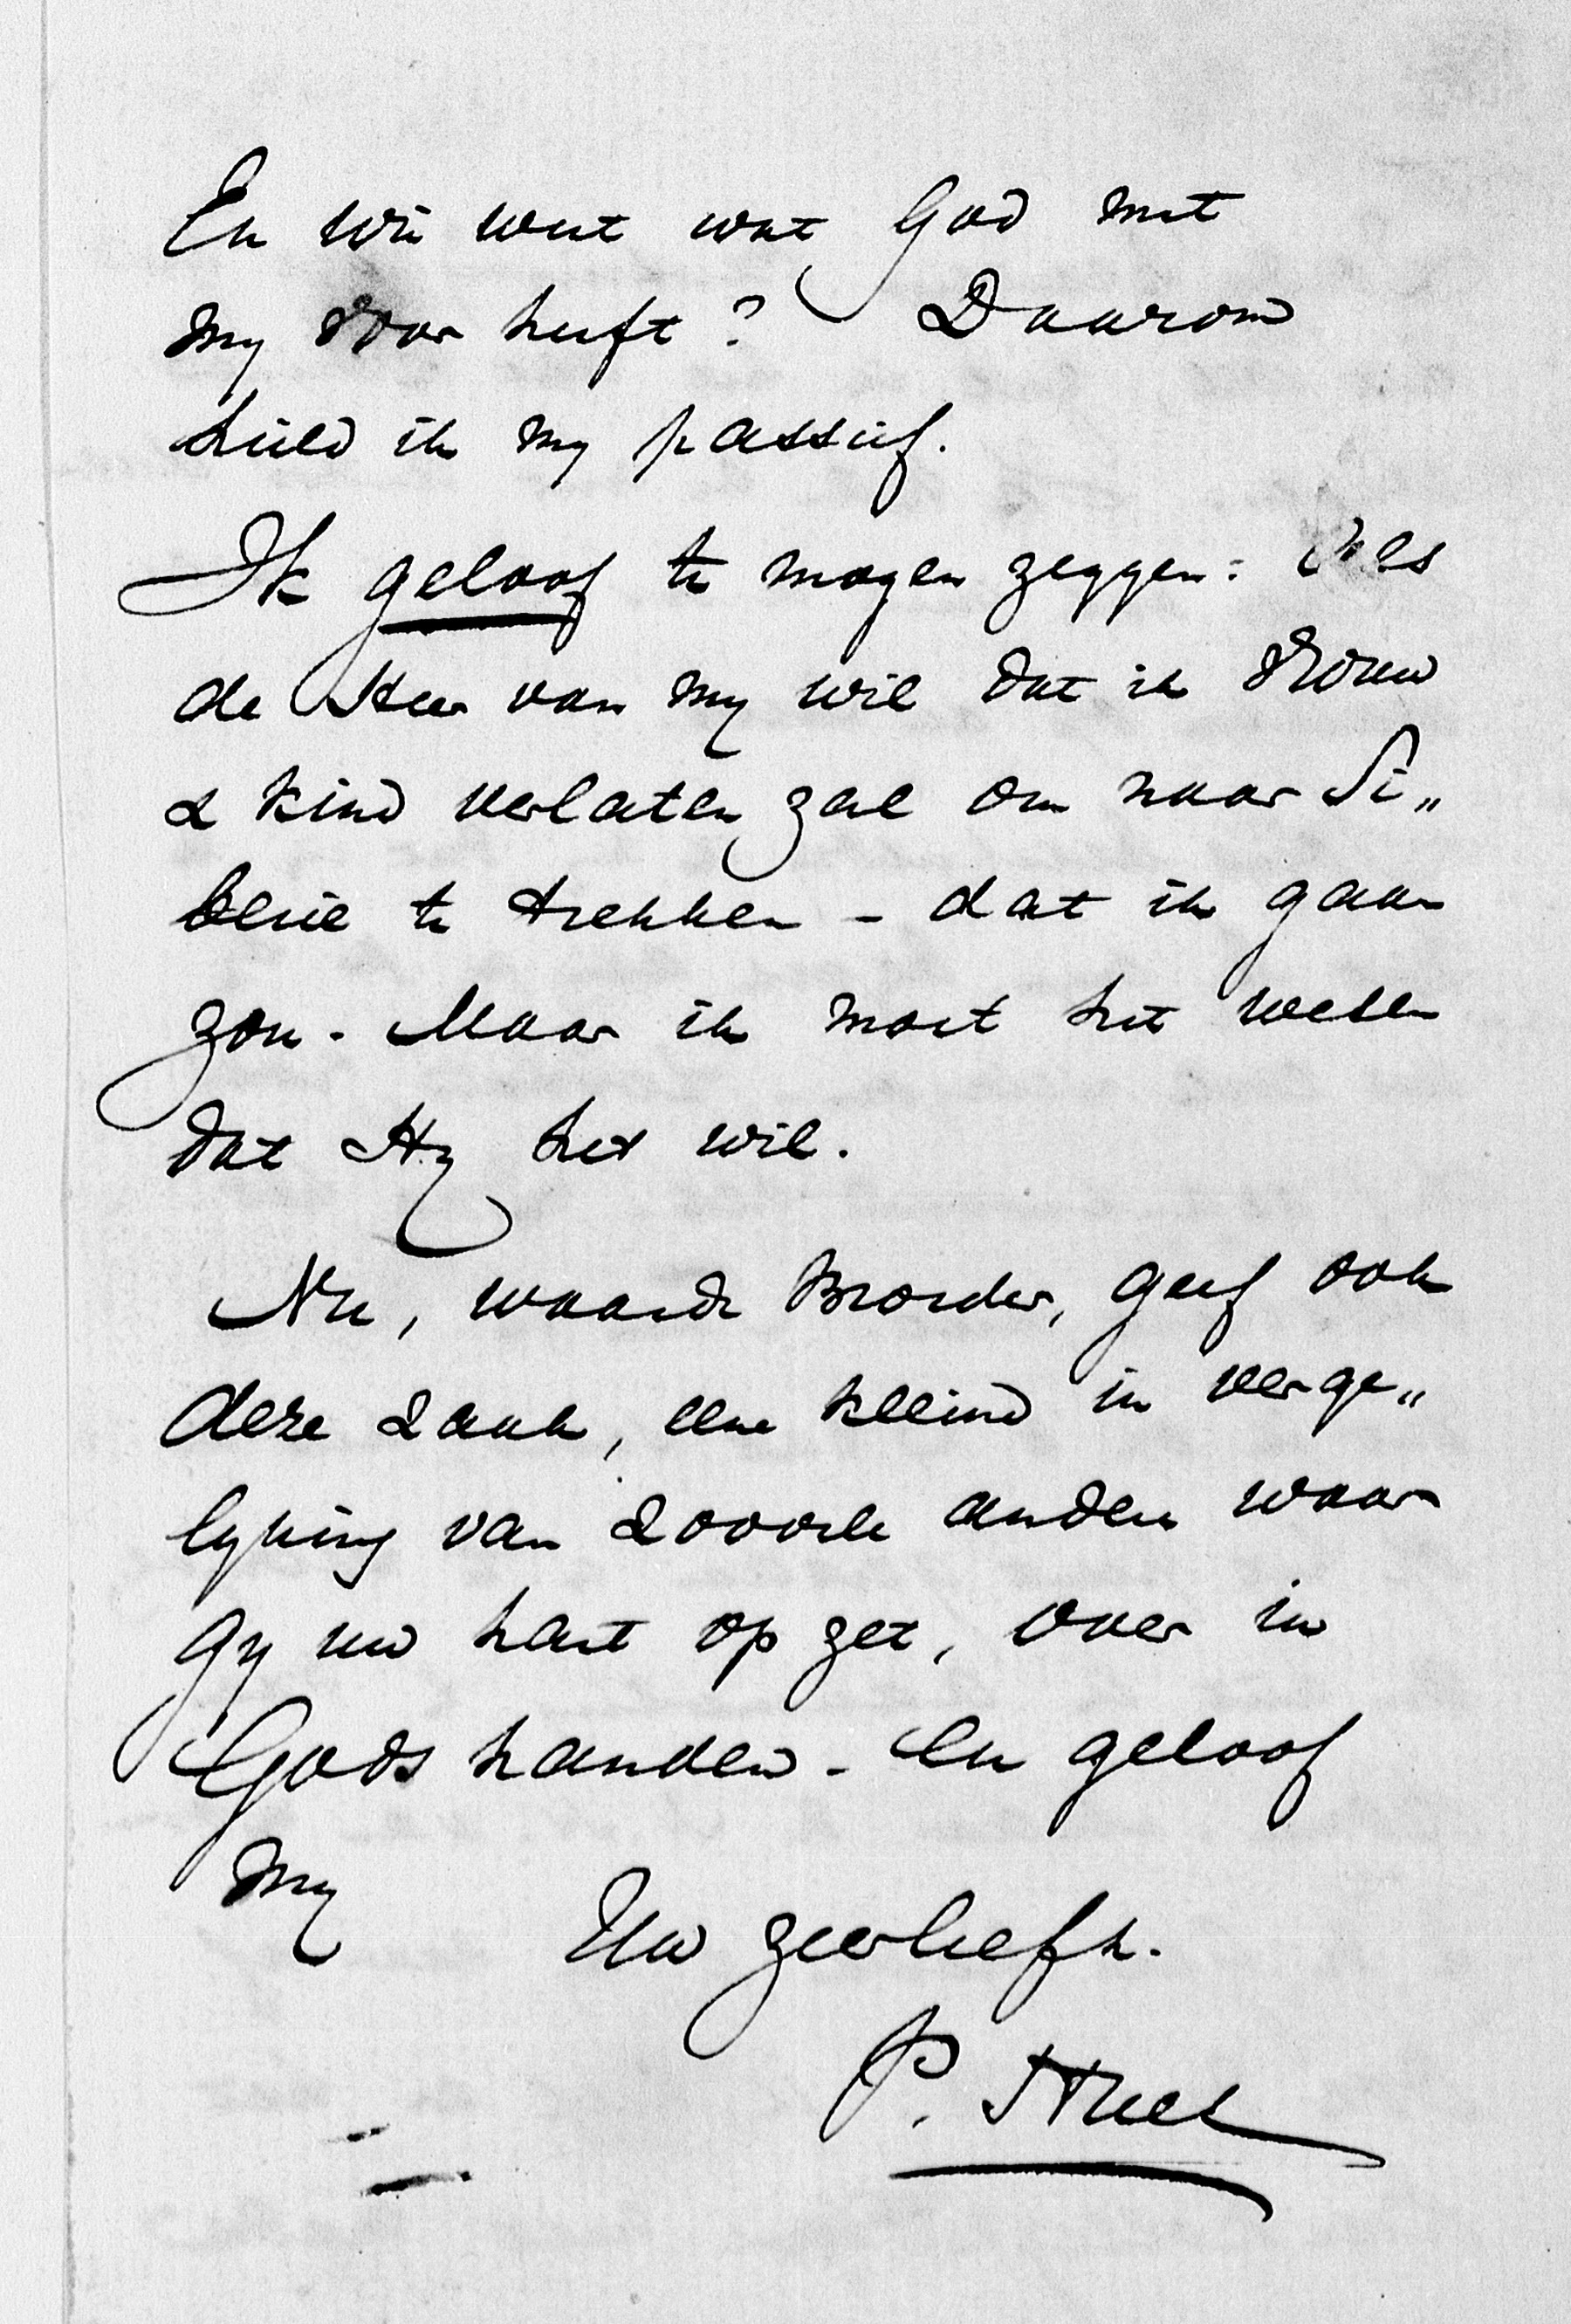 En wie weet wat God met
my voor heeft? Daarom
hield ik my passief.
Ik geloof te mogen zeggen: Als
de Heer van my wil dat ik vrouw
& kind verlaten zal om naar Si„
berie te trekken – dat ik gaan
zou. Maar ik moet het weten
dat Hy het wil.
Nu, waarde Broeder, geef ook
deze zaak, eene kleine in verge„
lyking van zoovele andere waar
gy uw hart op zet, over in
Gods handen. En geloof
my
Uw zeerliefh.
P. Huet